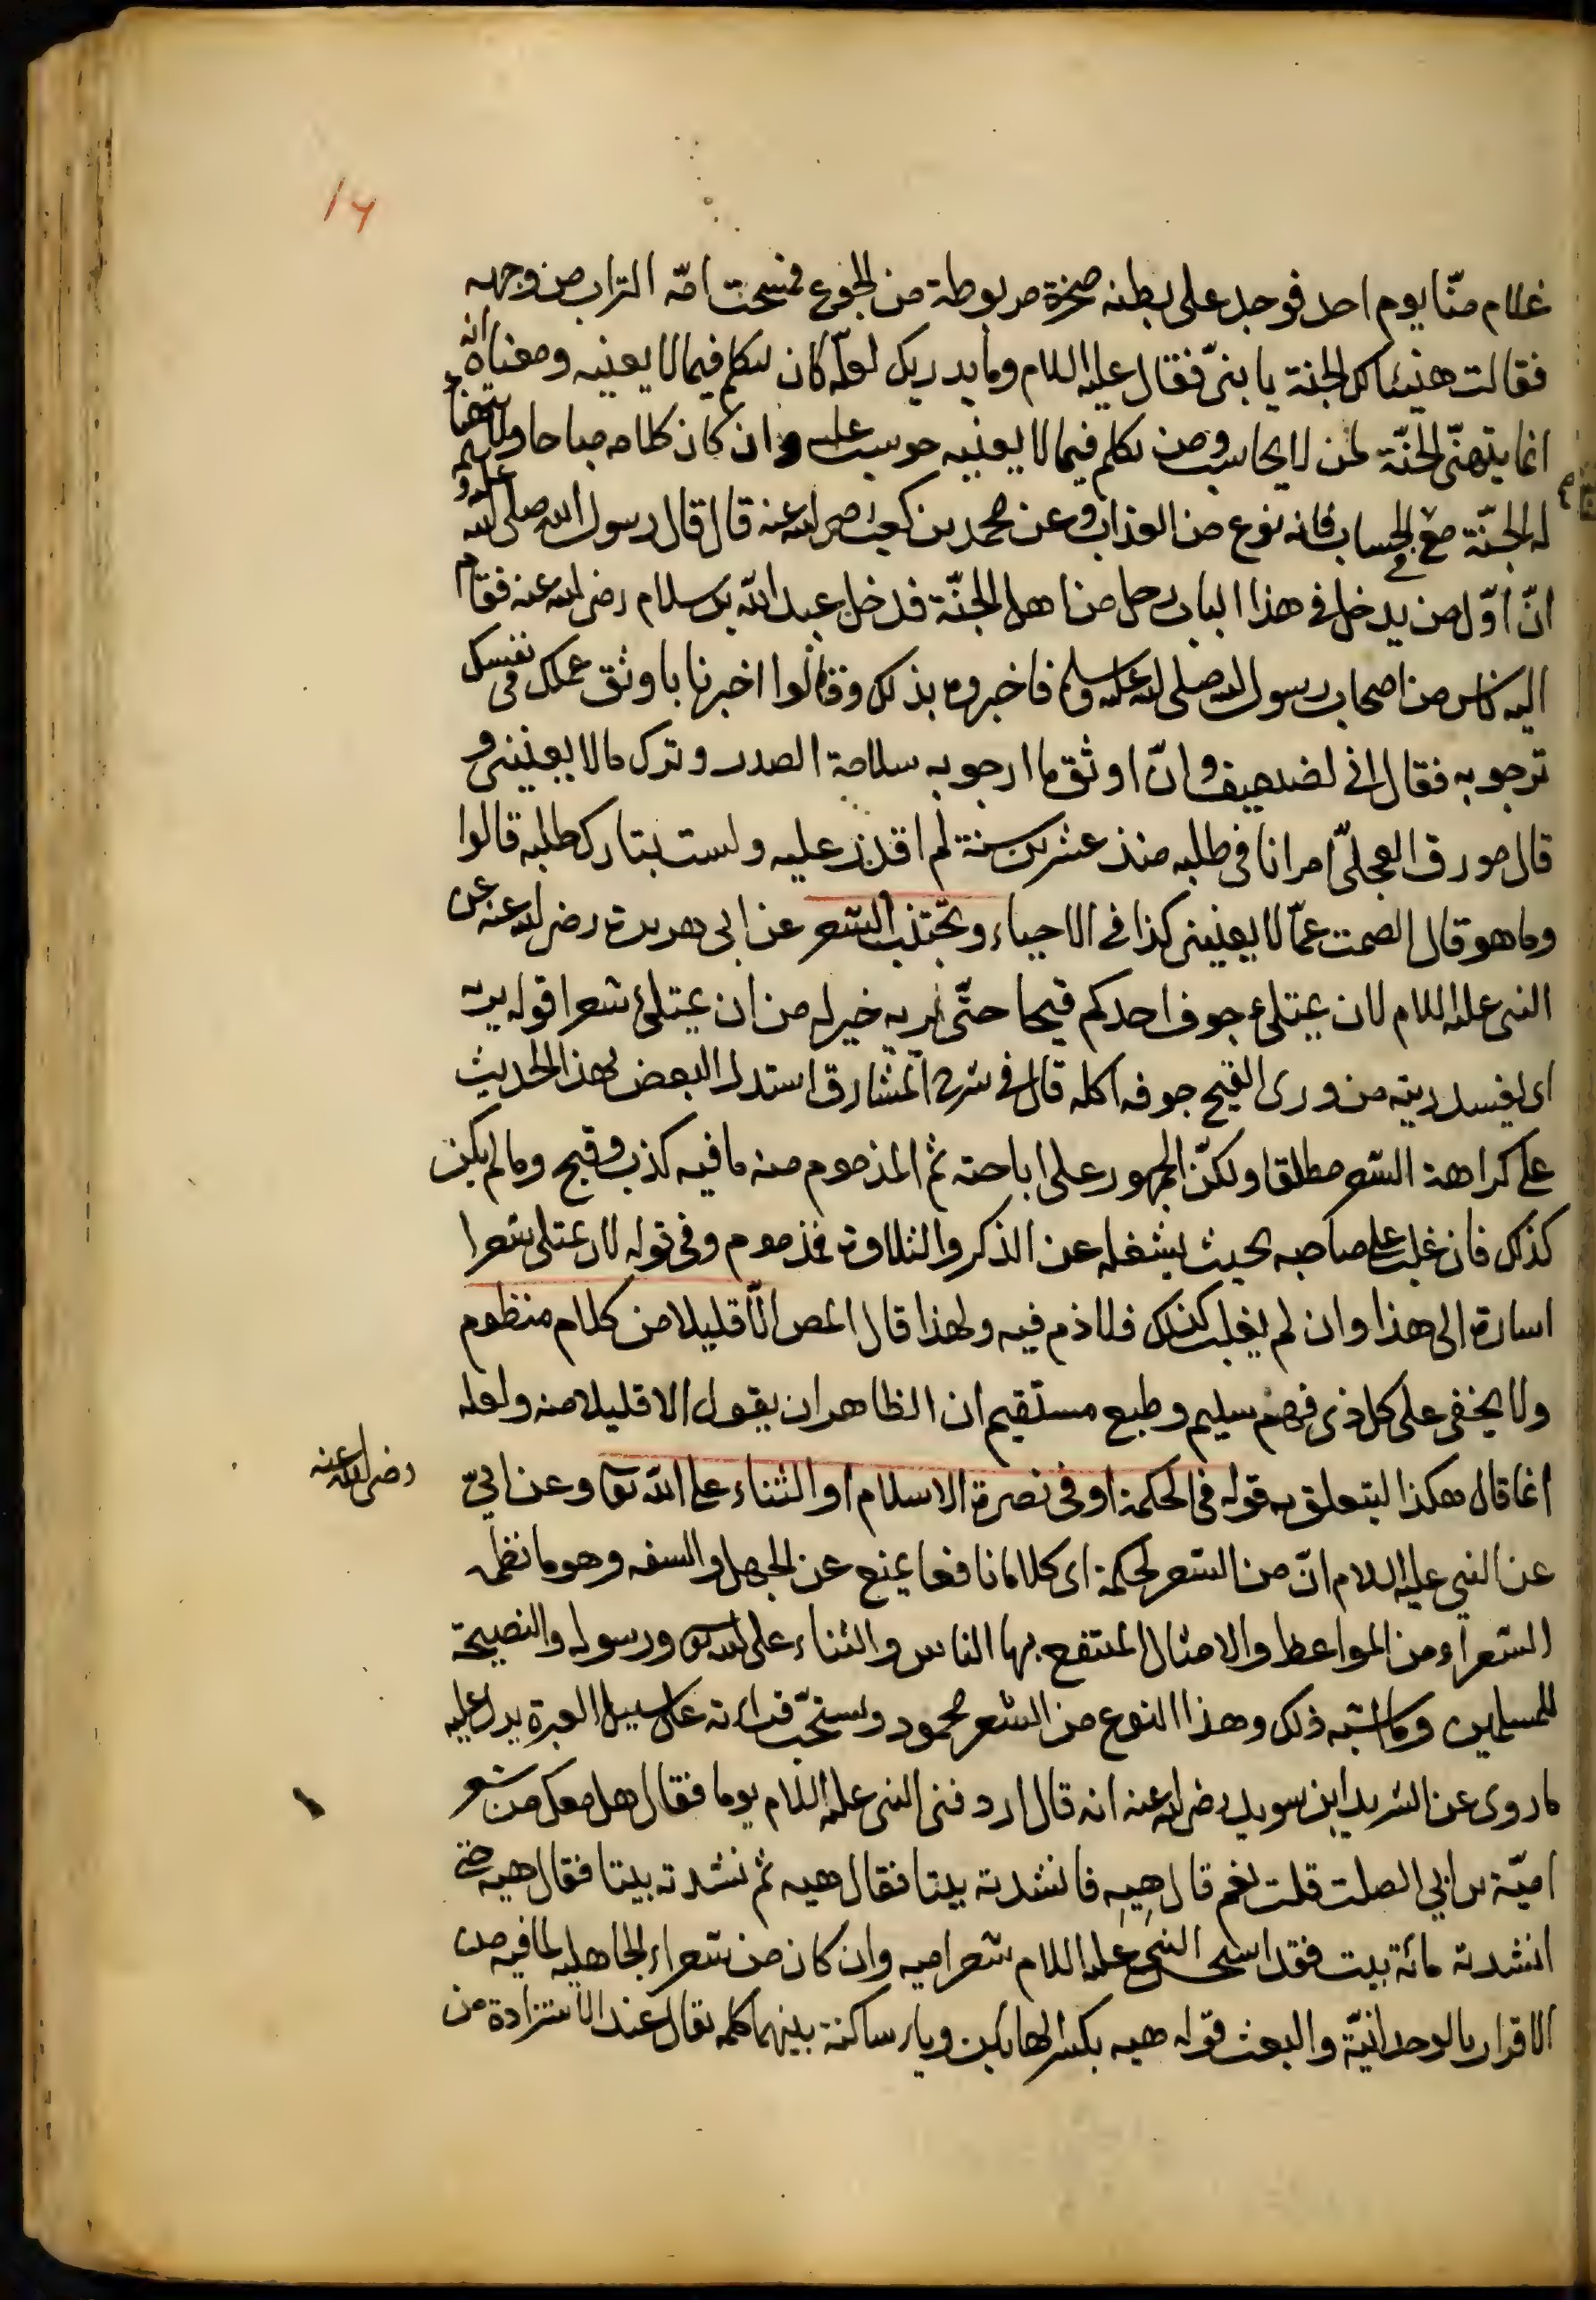 ١٦
غلام منّا يوم احد فوجد على بطنه صخرة مربوطة من الجوع فمسحت امّه التراب من وجهه
فقالت هنيئا لك الجنة يا بنىّ فقال عليه السلام وما يدريك لعلّه كان يتكلم فيما لا يعنيه ومعناه انه
انما يتهنّى الجنّة لمن لا يحاسب ومن تكلم فيما لا يعنيه حوسب عليه وان كان كلامه مباحا
له الجنّة مع الحساب فانه نوع من العذاب وعن محمد بن كعب رضى الله عنه قال قال رسول الله صلى الله عليه و
انّ اوّل من يدخل فى هذا الباب رجل من اهل الجنّة فدخل عبد الله بن سلام رضى الله عنه فقام
اليه ناس من اصحاب رسول الله صلى الله عليه وسلم فاخبروه بذلك وقالوا اخبرنا باوثق عملك فى نفسك
ترجو به فقال انى لضعيف وانّ اوثق ما ارجو به سلامة الصدر وترك ما لا يعنينى و
قال مورق العجلىّ امر انا فى طلبه منذ عشرين سنة لم اقدر عليه ولست بتارك طلبه قالوا
وما هو قال الصمت عمّا لا يعنينى كذا فى الاحياء وتجتنب الشعر عن ابى هريرة رضى الله عنه عن
النبى عليه السلام لان يمتلئ جوف احدكم قيحا حتّى يريه خير له من ان يمتلئ شعرا قوله يريه
اى يفسد ريته من ورى القيح جوفه اكله قال فى شرح المشارق استدل البعض بهذا الحديث
على كراهة الشعر مطلقا ولكنّ الجمهور على اباحته ثم المذموم منه ما فيه كذب وقبح وما لم يكن
كذلك فان غلب على صاحبه بحيث يشغله عن الذكر والتلاوة فمذموم وفى قوله لان يمتلى شعرا
اشارة الى هذا وان لم يغلب كذلك فلا ذم فيه ولهذا قال المص الّا قليلا من كلام منظوم
ولا يخفى على كل ذى فهم سليم وطبع مستقيم ان الظاهر ان يقول الا قليلا منه ولعله
انما قال هكذا ليتعلق به قوله فى الحكمة او فى نصرة الاسلام او الثناء على الله تعالى وعن ابىّ
رضى الله عنه
عن النبى عليه السلام انّ من الشعر لحكمة اى كلاما نافعا يمنع عن الجهل والسفه وهو ما نظمه
الشعراء من المواعظ والامثال المنتفع بها الناس والثناء على الله تعالى ورسوله والنصيحة
للمسلمين وما اشبه ذلك وهذا النوع من الشعر محمود ويستحبّ قراءته على سبيل العبرة يدل عليه
ما روى عن الشريد ابن سويد رضى الله عنه انه قال اردفنى النبى عليه السلام يوما فقال هل معك من شعر
اميّة بن ابى الصلت قلت نعم قال هيه فانشدته بيتا فقال هيه ثم نشدته بيتا فقال هيه حتى
انشدته مائة بيت فقد النبى عليه السلام شعر اميه وان كان من شعراء الجاهليه لما فيه من
الاقرار بالوحدانيّة والبعث قوله هيه بكسر الهائين وياء ساكنة بينهما كلمه تقال عند الاستزادة من